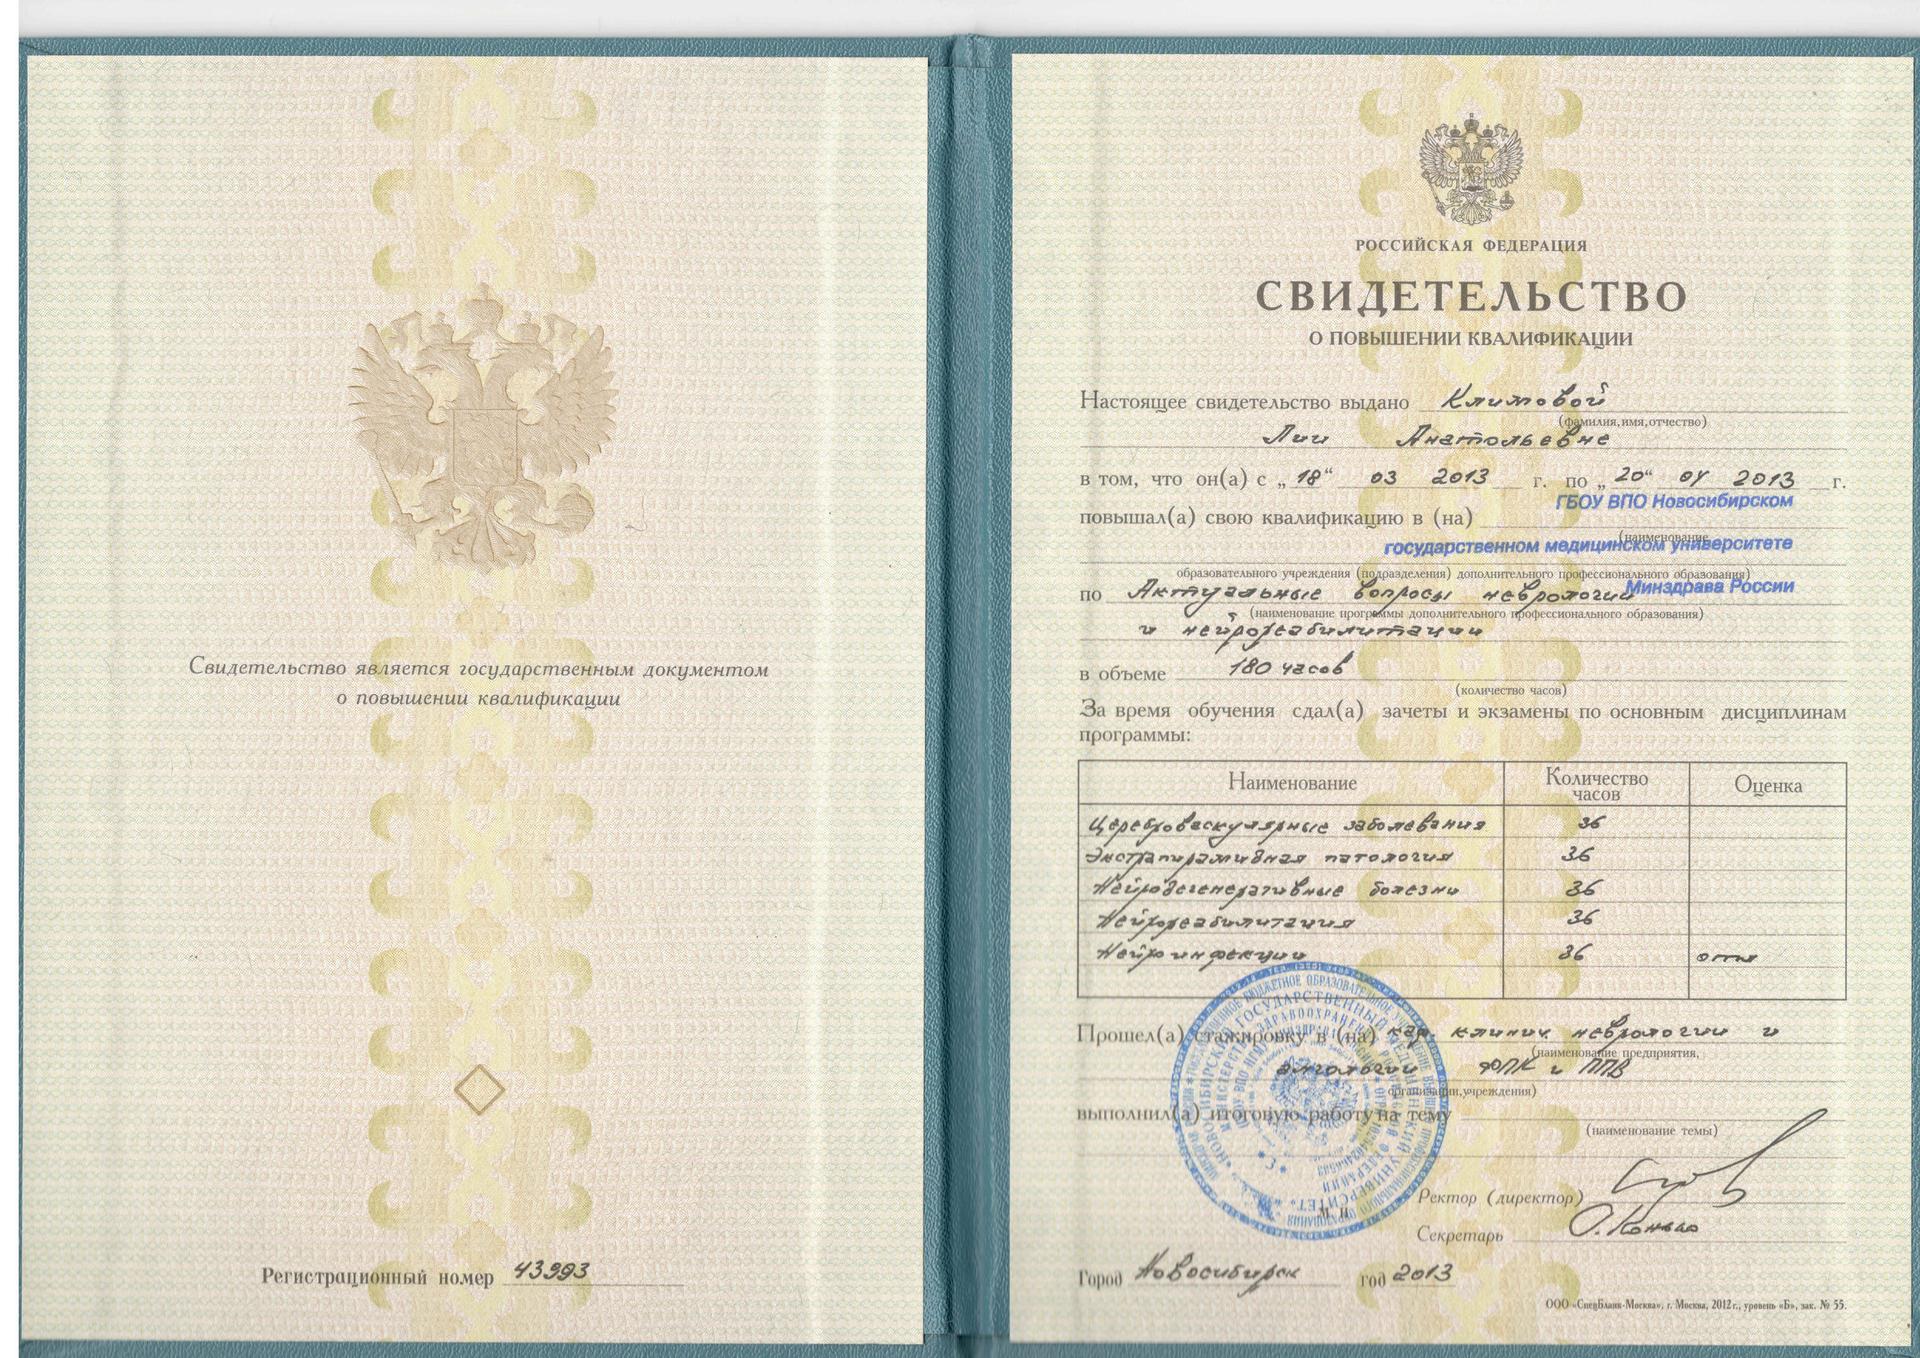 Свидетельство является государственным документом
о повышении квалификации
Регистрационный номер 43993
РОССИЙСКАЯ ФЕДЕРАЦИЯ
СВИДЕТЕЛЬСТВО
О ПОВЫШЕНИИ КВАЛИФИКАЦИИ
Настоящее свидетельство выдано Климовой
(фамилия,имя,отчество)
Лии Анатольевне
в том, что он(а) с „18“ 03 2013 г. по „20“ 04 2013 г.
ГБОУ ВПО Новосибирском
повышал(а) свою квалификацию в (на)
(наименование
государственном медицинском университете
образовательного учреждения (подразделения) дополнительного профессионального образования)
Минздрава России
по Актуальные вопросы неврологии
(наименование программы дополнительного профессионального образования)
и нейрореабилитации
в объеме 180 часов
(количество часов)
За время обучения сдал(а) зачеты и экзамены по основным дисциплинам
программы:
Наименование Количество часов Оценка
Цереброваскулярные заболевания 36
Экстрапирамидная патология 36
Нейродегенеративные болезни 36
Нейрореабилитация 36
Нейроинфекции 36 отл
Прошел(а) стажировку в (на) каф. клинич. неврологии и
(наименование предприятия,
алгологии ФПК и ППВ
организации,учреждения)
выполнил(а) итоговую работу на тему
(наименование темы)
Ректор (директор)
Секретарь
М П
Город Новосибирск год 2013
ООО «СпецБланк-Москва», г. Москва, 2012 г., уровень «Б», зак. № 55.